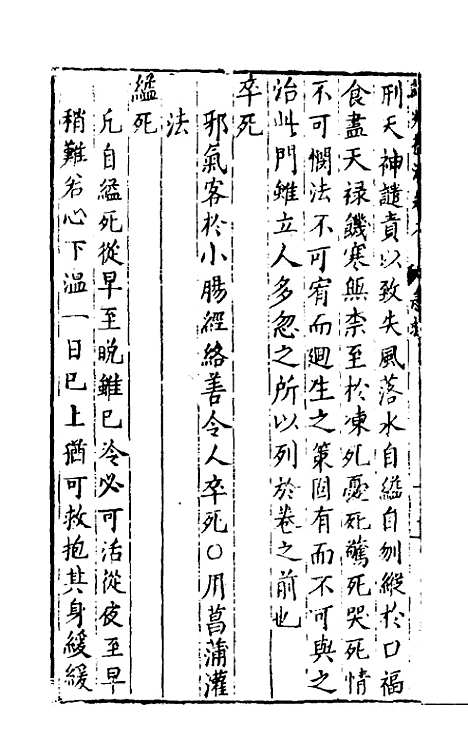 刑天神譴責以致失風落水自縊自刎縱於口福
食盡天禄饑寒無柰至於凍死憂死驚死哭死情
不可憫法不可宥而廻生之策固有而不可與之
治此門雖立人多忽之所以列於卷之前也
卒死
邪氣客於小腸經絡善令人卒死○用菖蒲灌
法
縊死
凡自縊死從早至晚雖已冷必可活從夜至早
稍難若心下溫一日已上猶可救抱其身緩緩